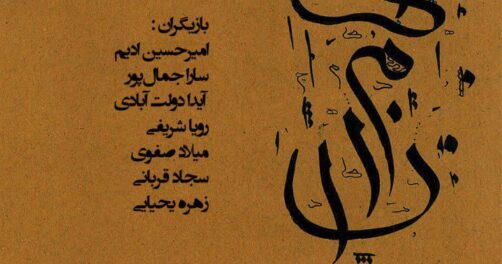 بازیگران :
امیرحسین ادیم
سارا جمال‌پور
آیدا دولت آبادی
رویا شریفی
میلاد صفوی
سجاد قربانی
زهره یحیایی